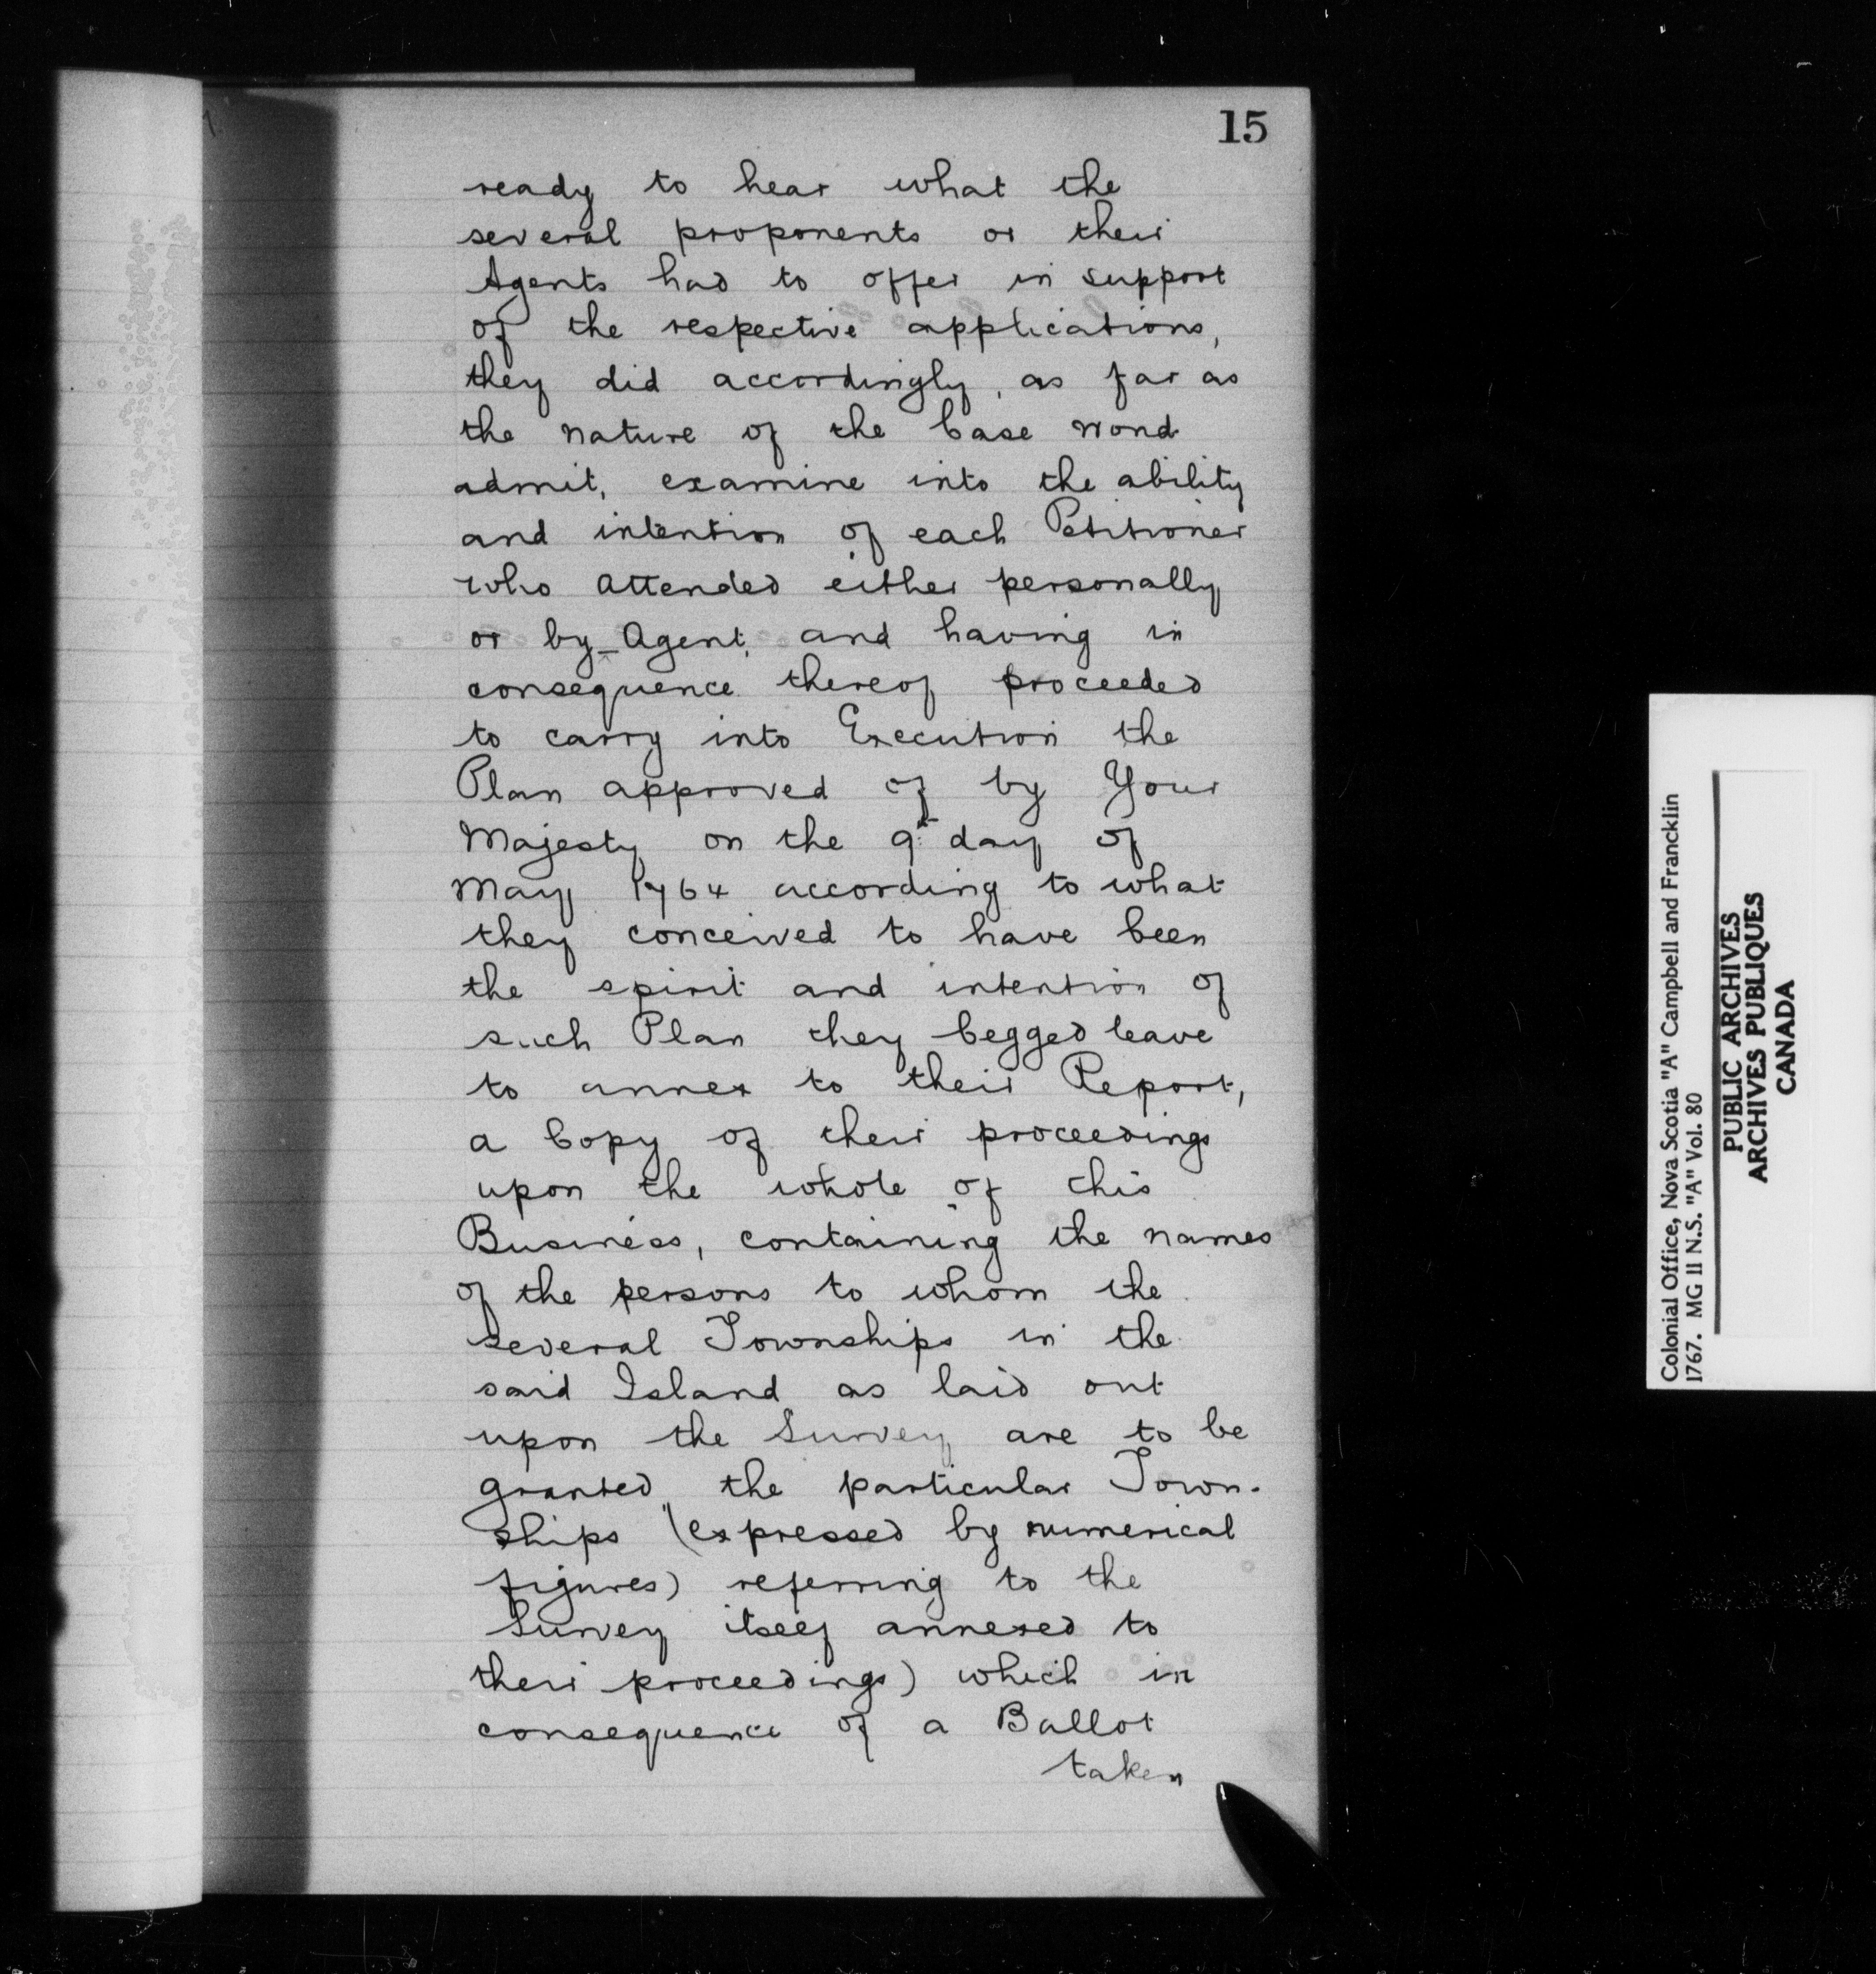 15
ready to hear what the
several proponents or their
Agents had to offer in support
of the respective applications,
they did accordingly, as far as
the nature of the Case wond
admit, examine into the ability
and intention of each Petitioner
who attended either personally
or by Agent, and having in
consequence thereof proceeded
to carry into Execution the
Plan approved of by Your
Majesty on the 9th day of
May 1764 according to what
they conceived to have been
the spirit and intention of
such Plan they begged leave
to annex to their Report,
a Copy of their proceedings
upon the whole of this
Business, containing the names
of the persons to whom the
several Townships in the
said Island as laid out
upon the Survey are to be
granted, the particular Town-
ships (expressed by numerical
figures) referring to the
Survey itself annexed to
their proceedings) which in
consequence of a Ballot
taken
Colonial Office, Nova Scotia "A" Campbell and Francklin
1767. MG 11 N.S. "A" Vol. 80
PUBLIC ARCHIVES
ARCHIVES PUBLIQUES
CANADA